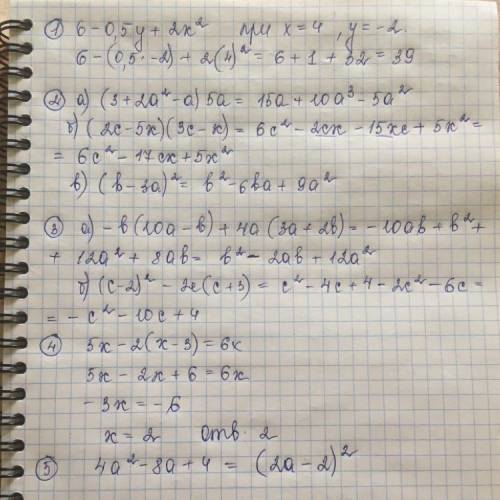 ① 6 - 0,5y + 2x² при x = 4, y = -2.
6 - (0,5 · -2) + 2(4)² = 6 + 1 + 32 = 39
② а) (3 + 2a² - a) 5a = 15a + 10a³ - 5a²
б) (2c - 5x)(3c - x) = 6c² - 2cx - 15xc + 5x² =
= 6c² - 17cx + 5x²
в) (b - 3a)² = b² - 6ba + 9a²
③ а) -b(10a - b) + 4a(3a + 2b) = -10ab + b² +
+ 12a² + 8ab = b² - 2ab + 12a²
б) (c - 2)² - 2c(c + 3) = c² - 4c + 4 - 2c² - 6c =
= -c² - 10c + 4
④ 5x - 2(x - 3) = 6x
5x - 2x + 6 = 6x
-3x = -6
x = 2 отв. 2
⑤ 4a² - 8a + 4 = (2a - 2)²